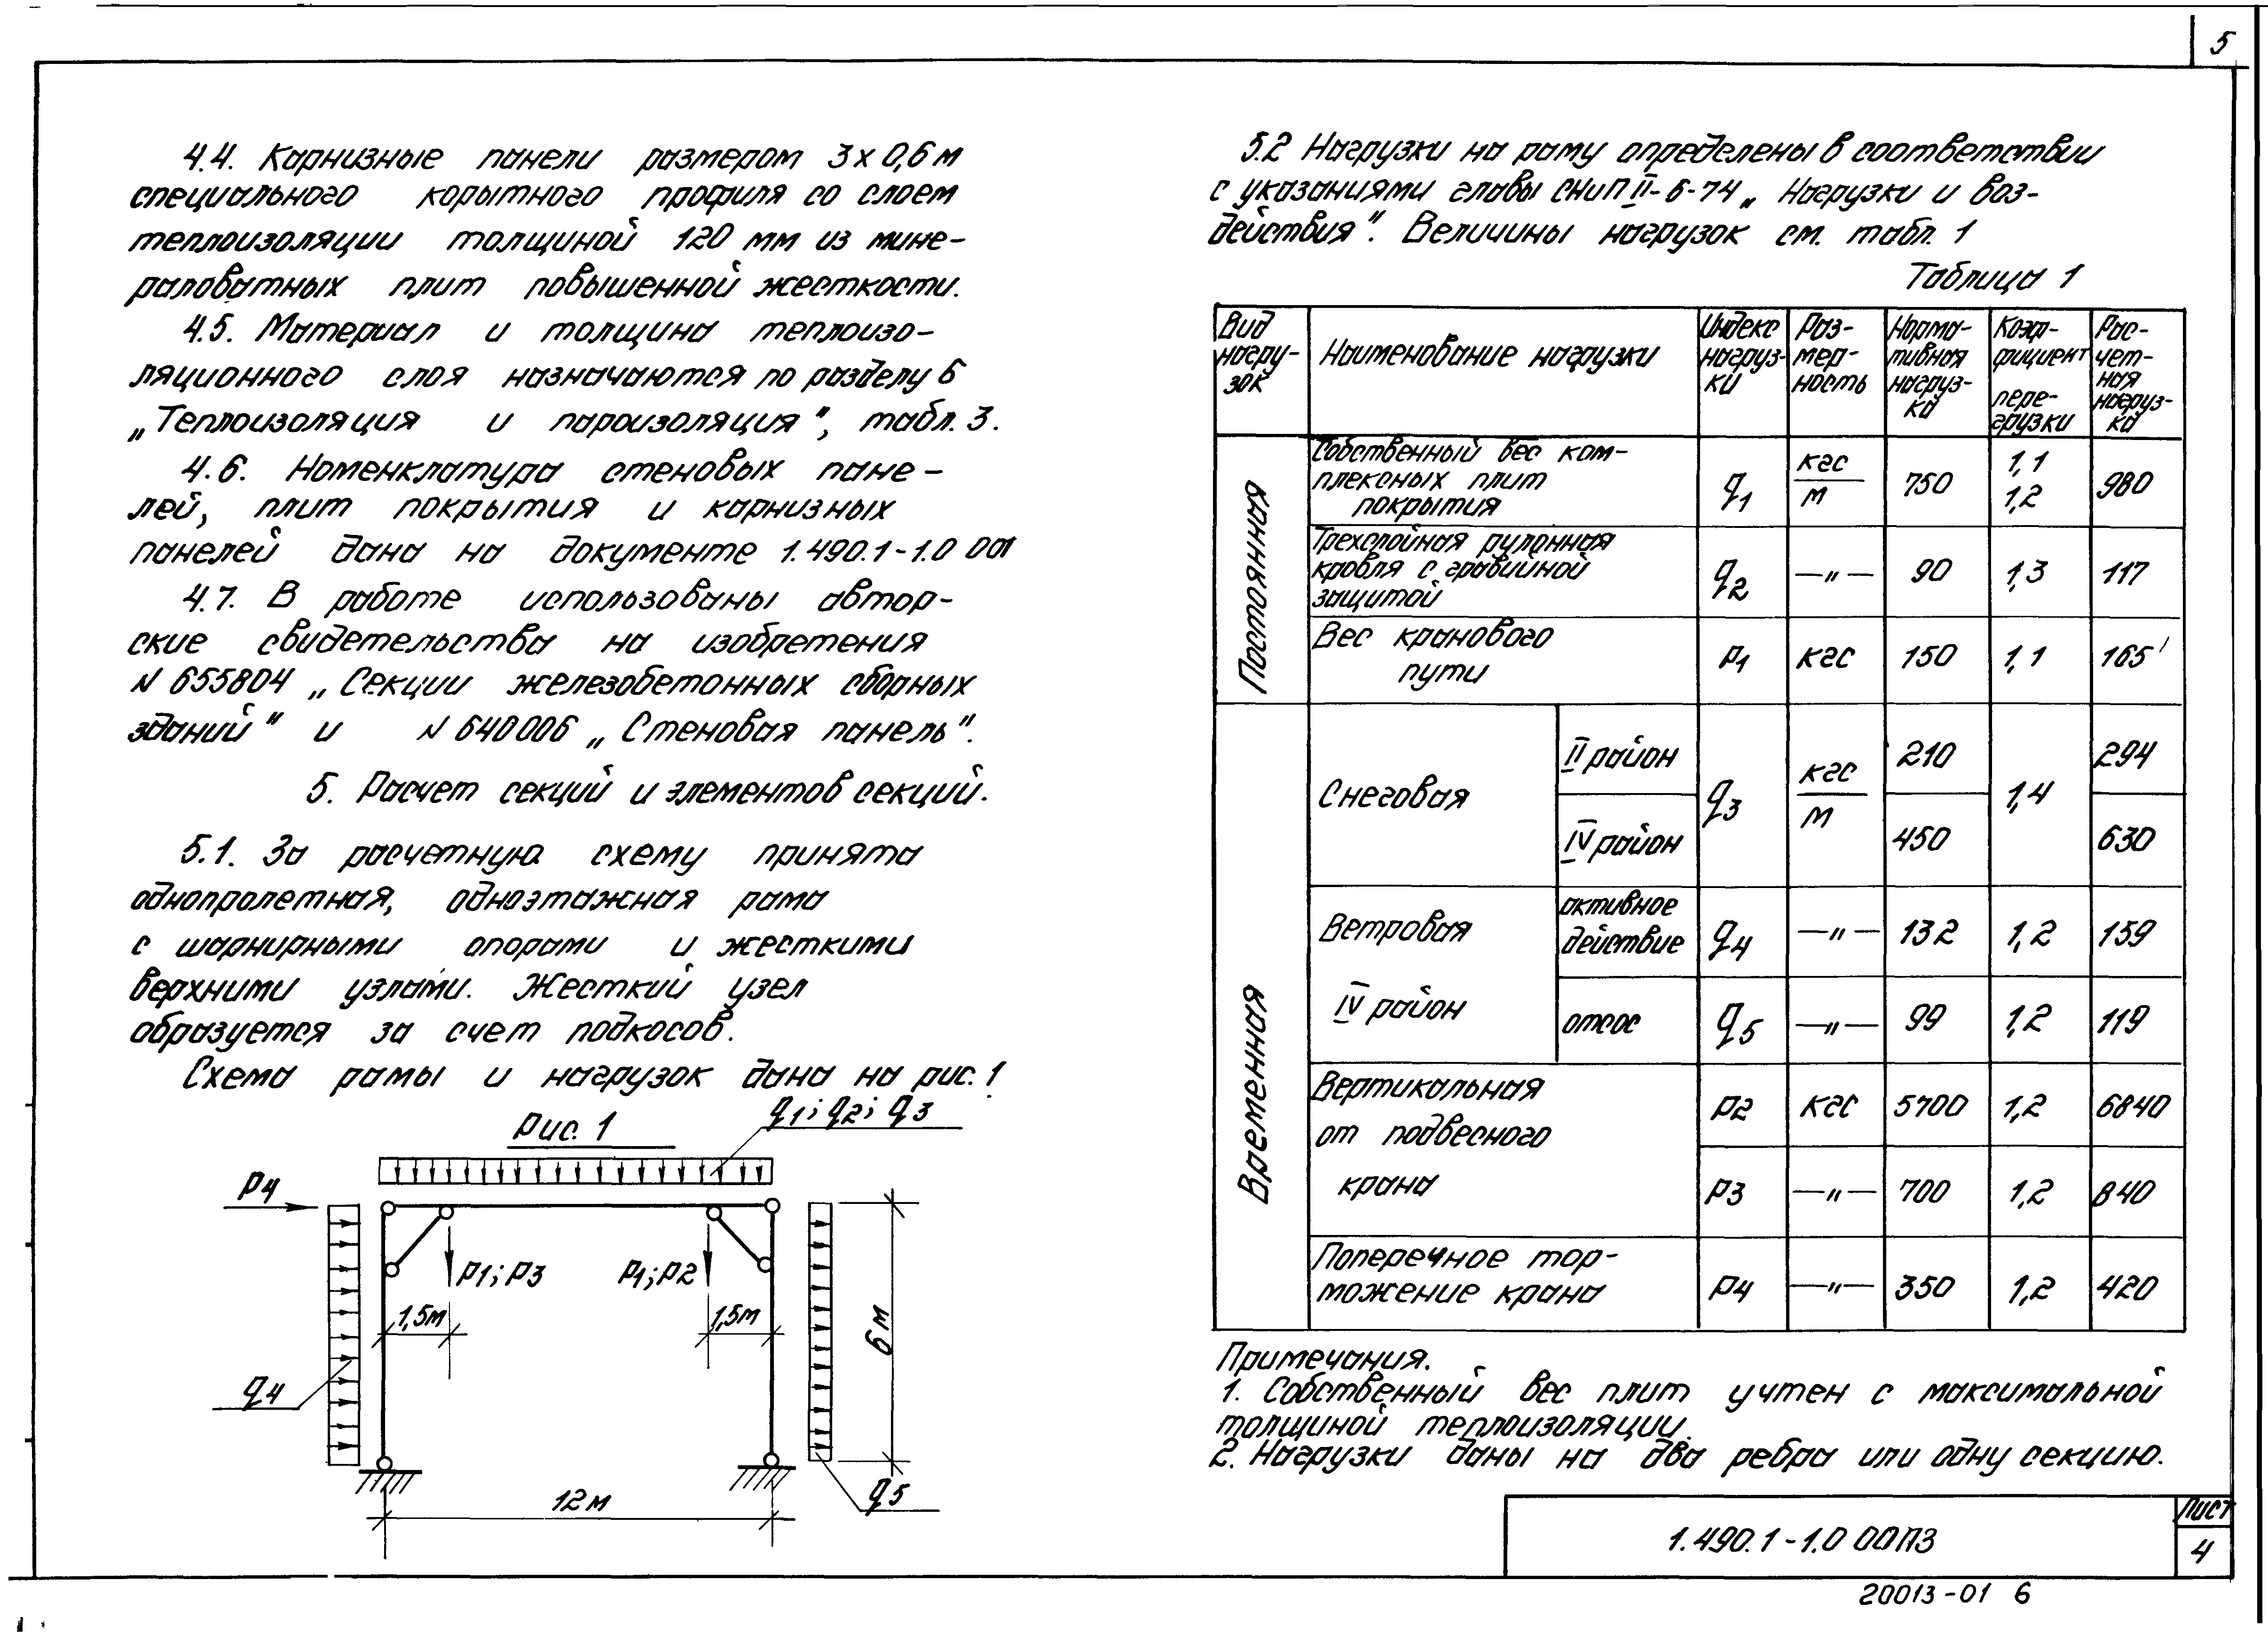 5
4.4. Карнизные панели размером 3х0,6м
специального корытного профиля со слоем
теплоизоляции толщиной 120 мм из мине-
раловатных плит повышенной жесткости.
4.5. Материал и толщина теплоизо-
ляционного слоя назначаются по разделу 6
„Теплоизоляция и пароизоляция", табл. 3.
4.6. Номенклатура стеновых пане-
лей, плит покрытия и карнизных
панелей дана на документе 1.490.1-1.0 001
4.7. В работе использованы автор-
ские свидетельства на изобретения
N 655804 „Секции железобетонных сборных
зданий" и N 640006 „Стеновая панель".
5. Расчет секций и элементов секций.
5.1. За расчетную схему принята
однопролетная, одноэтажная рама
с шарнирными опорами и жесткими
верхними узлами. Жесткий узел
образуется за счет подкосов.
Схема рамы и нагрузок дана на рис. 1
Рис. 1
q1; q2; q3
P4
P1; P3
P1; P2
1,5м
1,5м
6м
q4
q5
12м
5.2 Нагрузки на раму определены в соответствии
с указаниями главы СНиП II-6-74 „Нагрузки и воз-
действия". Величины нагрузок см. табл. 1
Таблица 1
Вид нагру-зок
Наименование нагрузки
Индекс нагруз-ки
Раз-мер-ность
Норма-тивная нагруз-ка
Коэф-фициент пере-грузки
Рас-чет-ная нагруз-ка
Постоянная
Собственный вес ком-
плексных плит
покрытия
q1
кгс/м
750
1,1
1,2
980
Трехслойная рулонная
кровля с гравийной
защитой
q2
—"—
90
1,3
117
Вес кранового
пути
P1
кгс
150
1,1
165
Временная
Снеговая
II район
q3
кгс/м
210
1,4
294
IV район
450
630
Ветровая
IV район
активное
действие
q4
—"—
132
1,2
159
отсос
q5
—"—
99
1,2
119
Вертикальная
от подвесного
крана
P2
кгс
5700
1,2
6840
P3
—"—
700
1,2
840
Поперечное тор-
можение крана
P4
—"—
350
1,2
420
Примечания.
1. Собственный вес плит учтен с максимальной
толщиной теплоизоляции.
2. Нагрузки даны на два ребра или одну секцию.
1.490.1-1.0 00ПЗ
Лист
4
20013-01 6